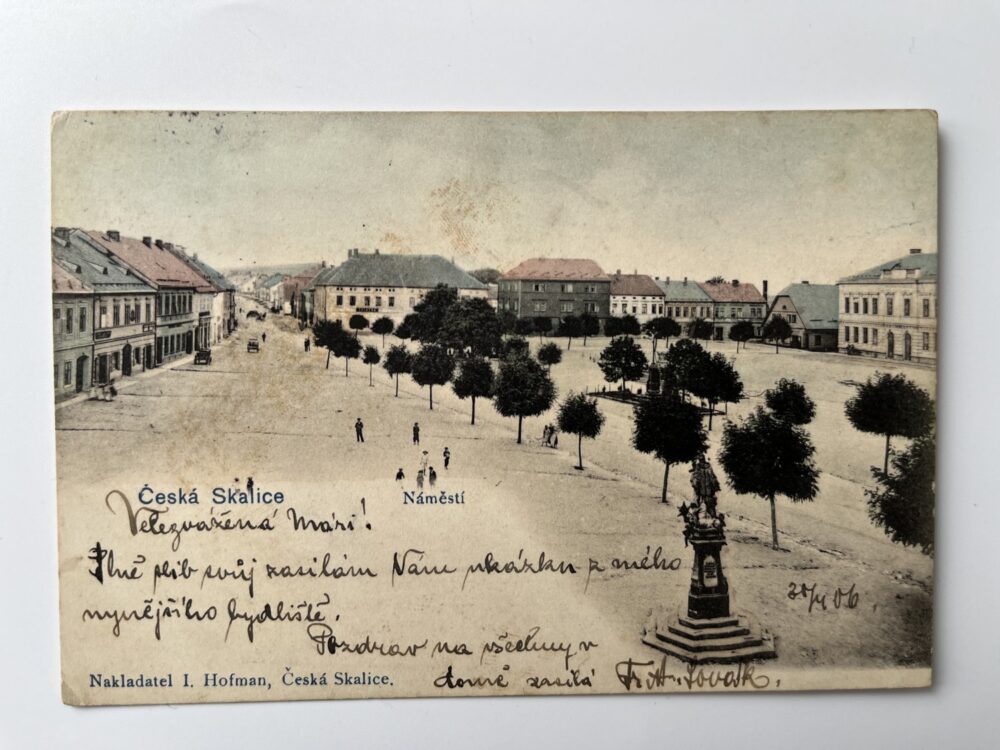 Česká Skalice
Náměstí
Velevážená Mári!
Plně slib svůj zasílám Vám ukázku z mého
nynějšího bydliště.
Pozdrav na všechny v
domě zasílá
06.
Nakladatel I. Hofman, Česká Skalice.